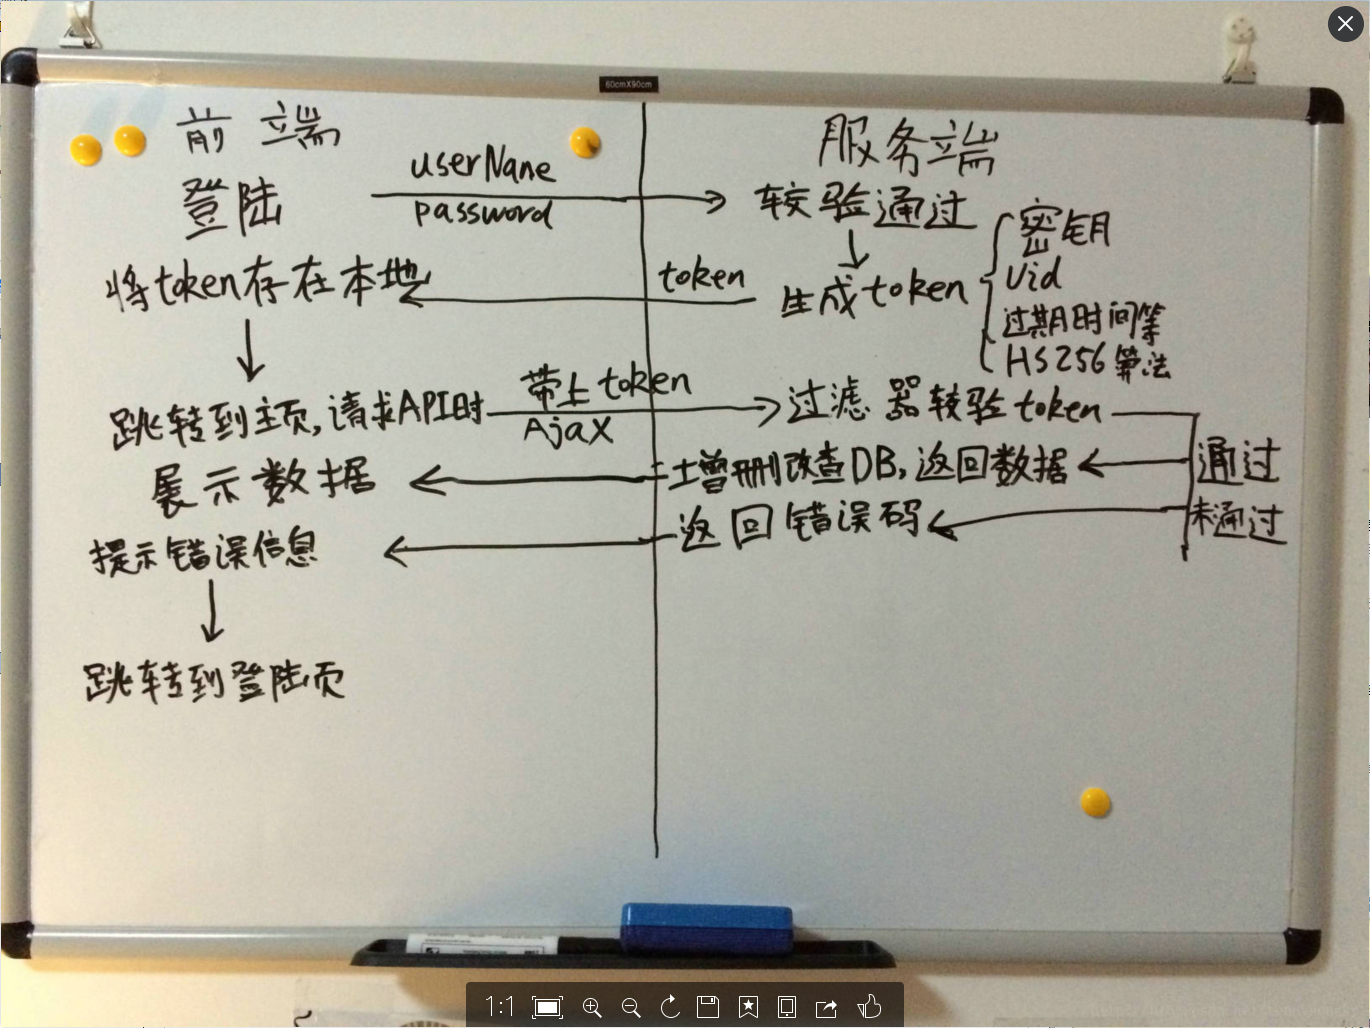 60cmX90cm
前端
服务端
登陆
userNane
password
较验通过
密钥
Uid
过期时间等
HS256算法
将token存在本地
token
生成token
跳转到主页,请求API时
带上token
AjaX
过滤器较验token
展示数据
增删改查DB,返回数据
通过
提示错误信息
返回错误码
未通过
跳转到登陆页
1:1